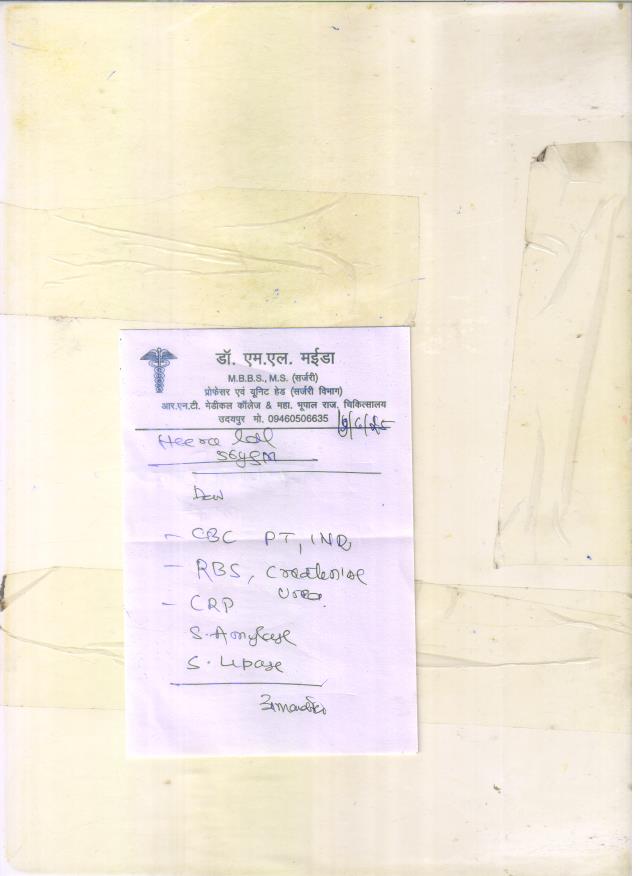 डॉ. एम.एल. मईडा
M.B.B.S., M.S. (सर्जरी)
प्रोफेसर एवं यूनिट हेड (सर्जरी विभाग)
आर.एन.टी. मेडीकल कॉलेज & महा. भूपाल राज. चिकित्सालय
उदयपुर मो. 09460506635
Heera lal
56y5M
- CBC PT, INR
- RBS, Creatinine
Urea
- CRP
S. Amylase
S. Lipase